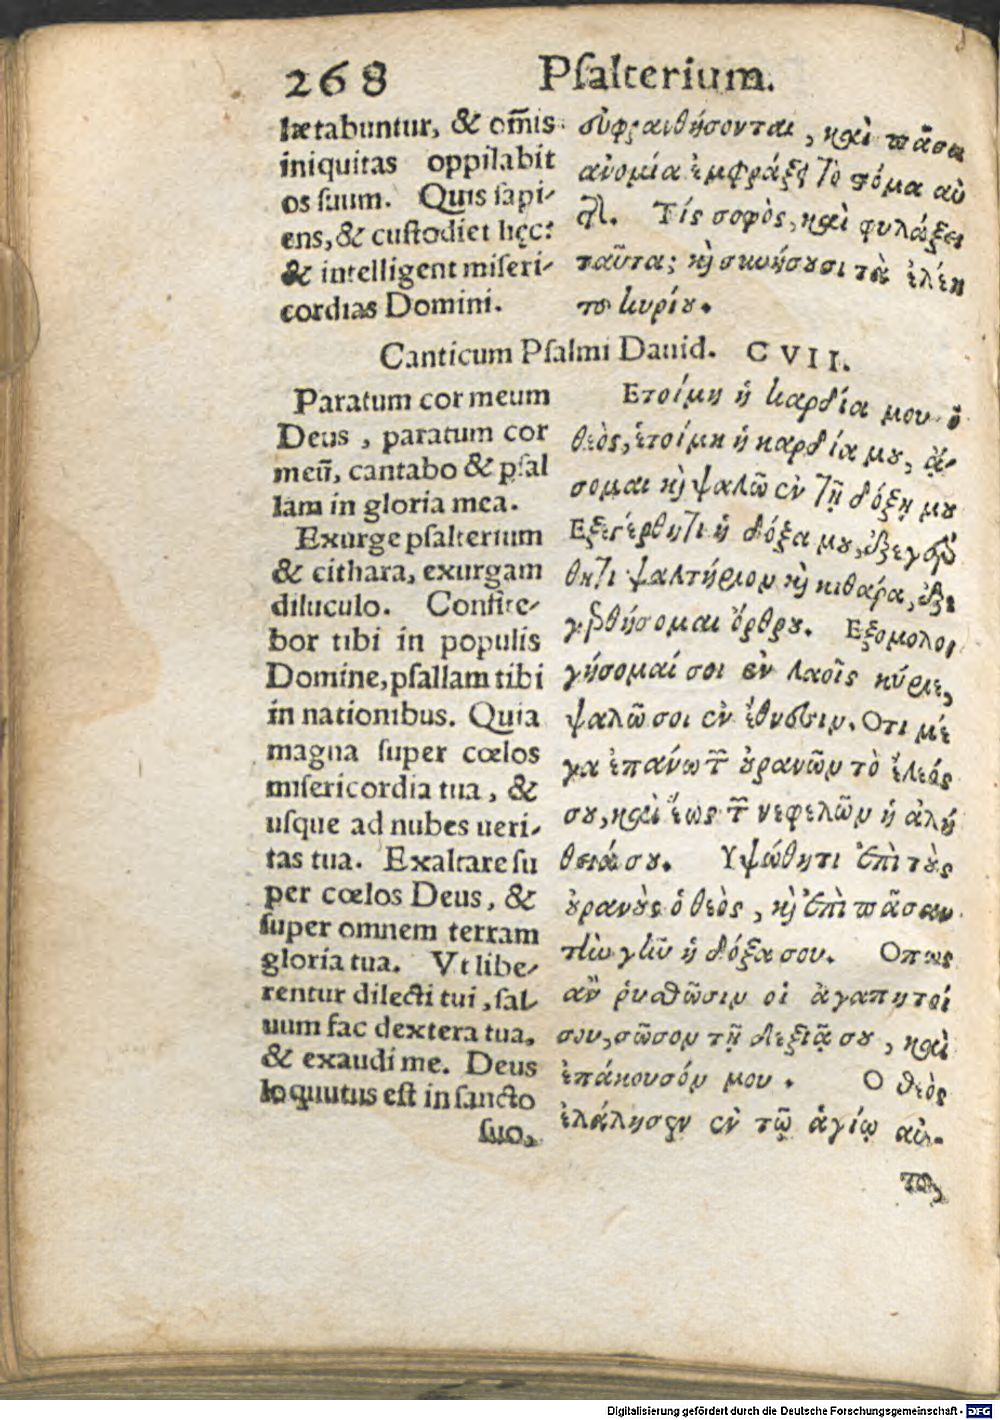 268 Psalterium.
lætabuntur, & om̃is
iniquitas oppilabit
os suum. Quis sapi-
ens, & custodiet hęc?
& intelligent miseri-
cordias Domini.
ευφρανθήσονται, καὶ πᾶσα
ἀνομία ἐμφράξει τὸ στόμα αὐ
τῆς. Τίς σοφὸς, καὶ φυλάξει
ταῦτα; κὴ συνήσουσι τὰ ἐλέη
το κυρίου.
Canticum Psalmi Dauid. CVII.
Paratum cor meum
Deus, paratum cor
meũ, cantabo & psal
lam in gloria mea.
Exurge psalterium
& cithara, exurgam
diluculo. Confite-
bor tibi in populis
Domine, psallam tibi
in nationibus. Quia
magna super cœlos
misericordia tua, &
usque ad nubes ueri-
tas tua. Exaltare su
per cœlos Deus, &
super omnem terram
gloria tua. Vt libe-
rentur dilecti tui, sal
uum fac dextera tua,
& exaudi me. Deus
loquutus est in sancto
suo,
Ετοίμη ἡ καρδία μου ὁ
θεὸς, ἑτοίμη ἡ καρδία μου, ᾄ-
σομαι καὶ ψαλῶ ἐν τῇ δόξῃ μου
Εξεγέρθητι ἡ δόξα μου, ἐξεγέρ
θητι ψαλτήριον καὶ κιθάρα, ἐξε
γερθήσομαι ὄρθρου. Εξομολο
γήσομαί σοι ἐν λαοῖς κύριε,
ψαλῶ σοι ἐν ἔθνεσιν. Οτι μέ
γα ἐπάνω τῶν οὐρανῶν τὸ ἔλεός
σου, καὶ ἕως τῶν νεφελῶν ἡ ἀλή
θειά σου. Υψώθητι ἐπὶ τοὺς
οὐρανοὺς ὁ θεὸς, καὶ ἐπὶ πᾶσαν
τὴν γῆν ἡ δόξα σου. Οπως
ἂν ῥυσθῶσιν οἱ ἀγαπητοί
σου, σῶσον τῇ δεξιᾷ σου, καὶ
ἐπάκουσόν μου. Ο θεὸς
ἐλάλησεν ἐν τῷ ἁγίῳ αὐ-
τοῦ,
Digitalisierung gefördert durch die Deutsche Forschungsgemeinschaft - DFG